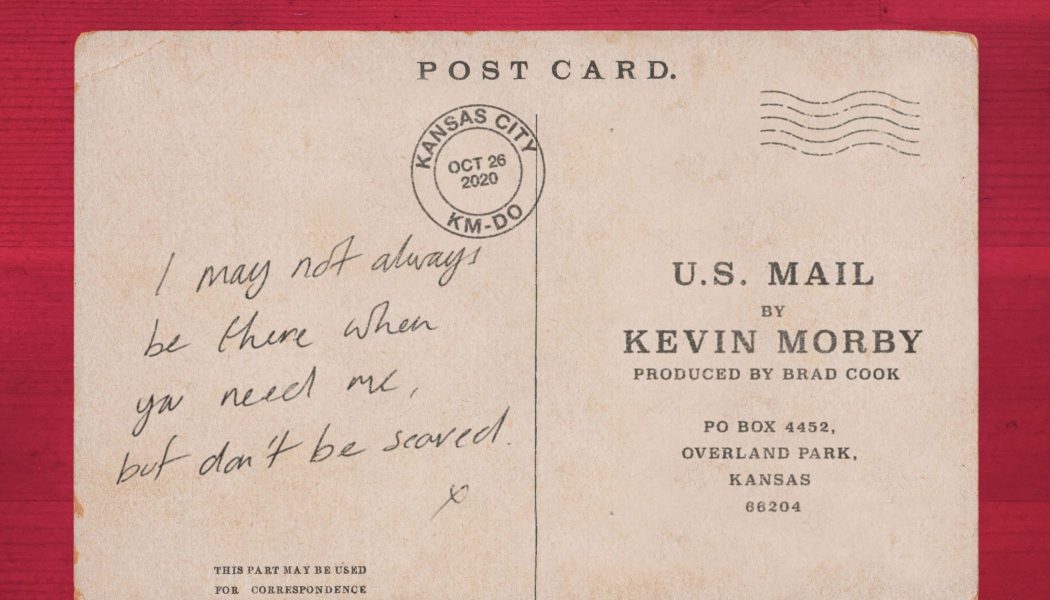 POST CARD.
KANSAS CITY
OCT 26
2020
KM-DO
I may not always
be there when
you need me,
but don't be scared.
x
THIS PART MAY BE USED
FOR CORRESPONDENCE
U.S. MAIL
BY
KEVIN MORBY
PRODUCED BY BRAD COOK
PO BOX 4452,
OVERLAND PARK,
KANSAS
66204